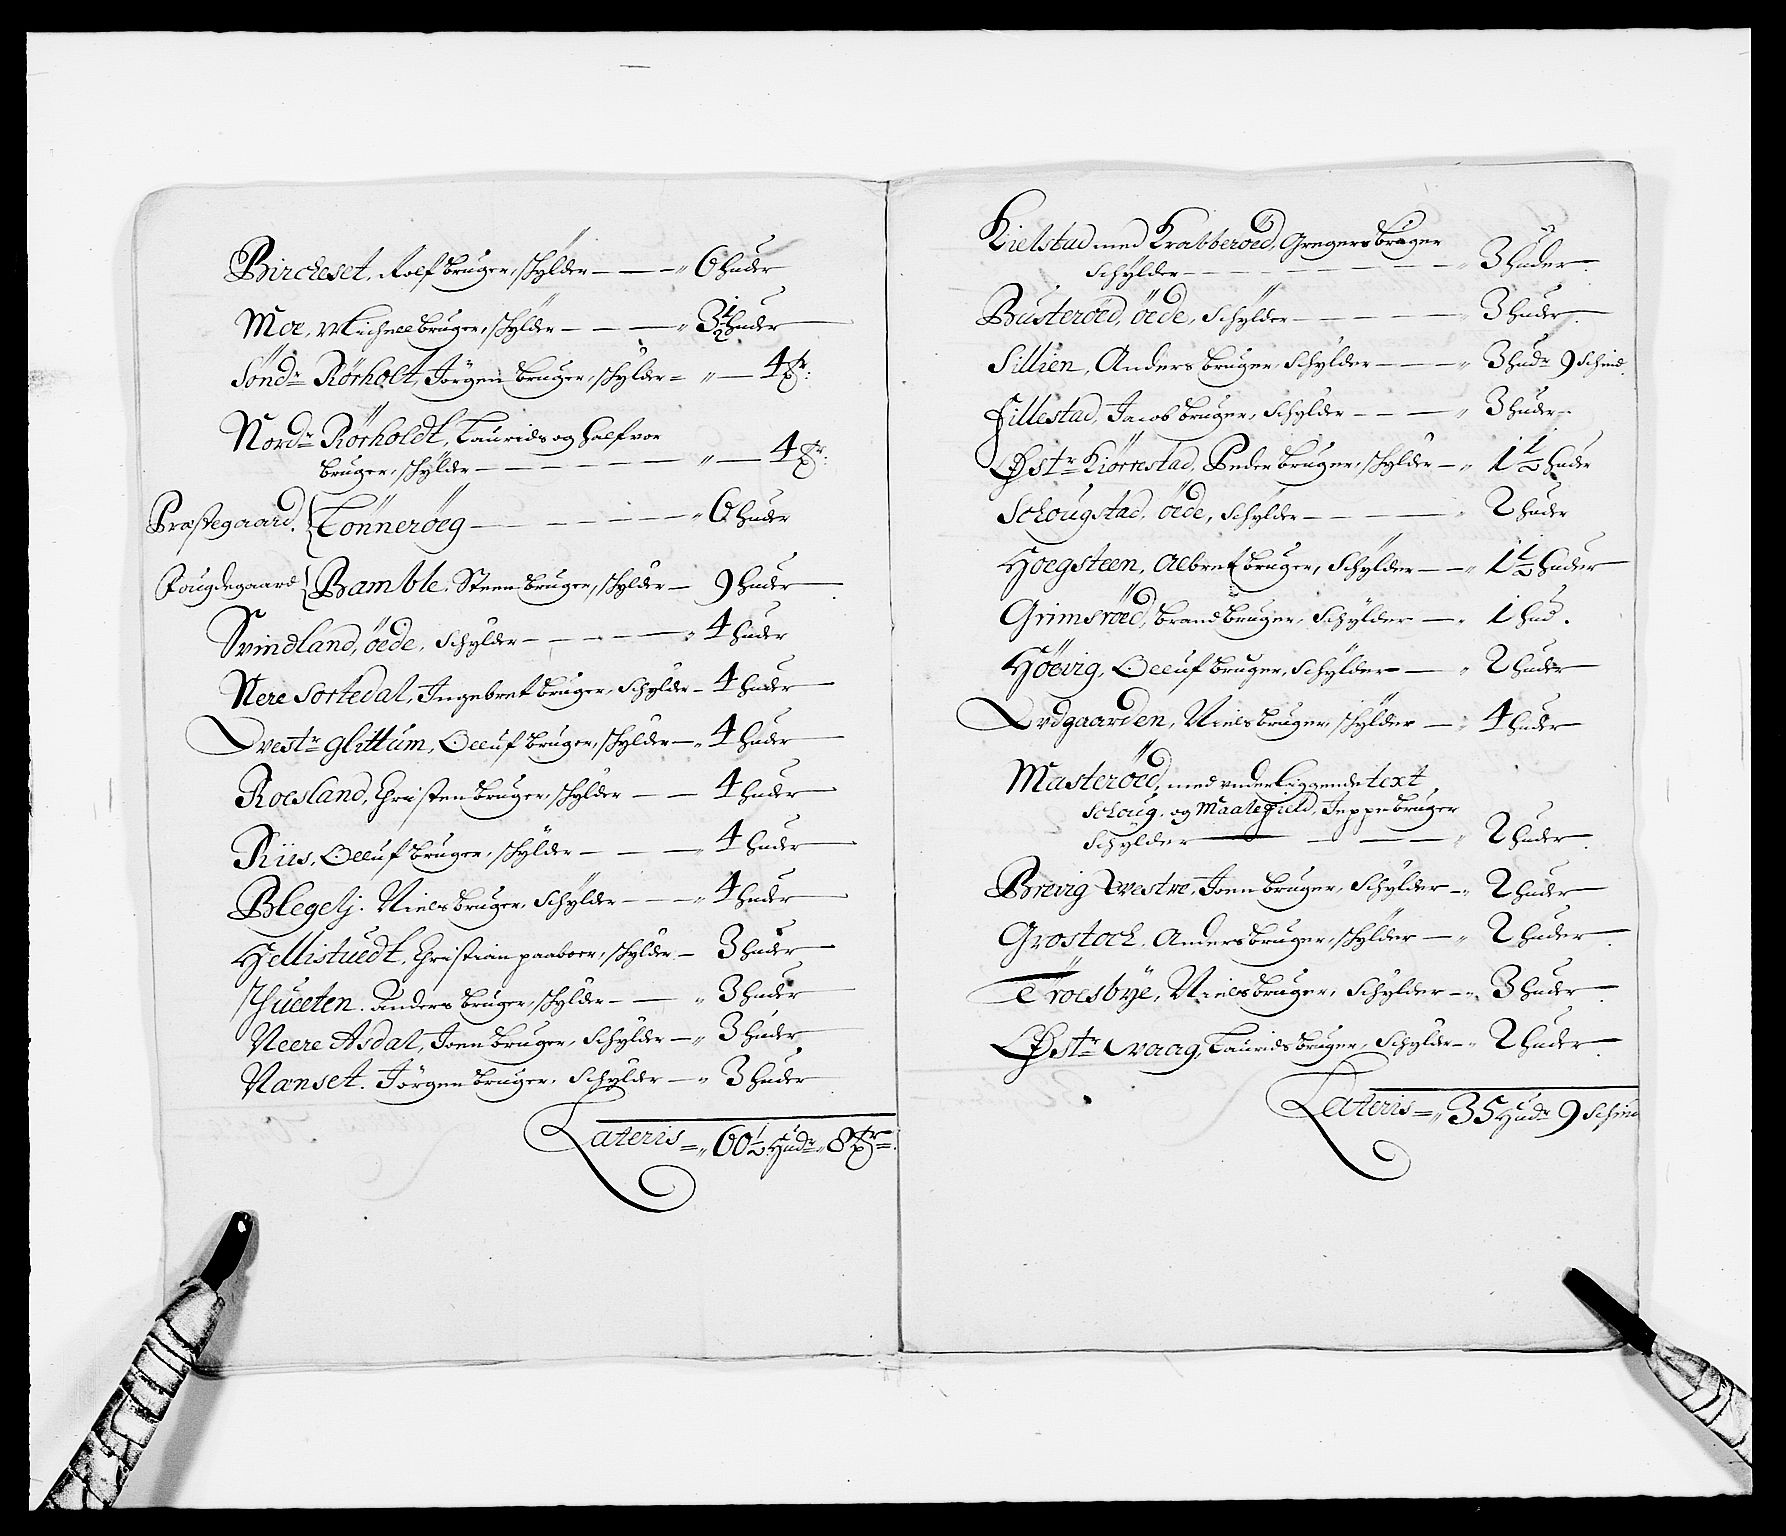 Bircheset, Rolf bruger, schÿlder — — — „ 6 huder
Moe, Michael bruger, schÿlder — — — „ 3½ huder
Söndr Rörholt, Jörgen bruger, schÿlder = „ — 4 tr:
Nordr Rörholdt, Laurids og Halfvor
bruger, schÿlder — — — — — „ — 4 tr:
Præstegaard { Tönneröeg — — — — — „ 6 huder
Fougdegaard { Bamble, Steen bruger, schÿlder — 9 huder
Svindland, öede, schÿlder — — — — „ 4 huder
Nere Sortedal, Ingebret bruger, schÿlder — 4 huder
Vestr Glittum, Oeluf bruger, schÿlder — „ 4 huder
Roesland, Christen bruger, schÿlder — — 4 huder
Riis, Oeluf bruger, schÿlder — — — „ 4 huder
Blegelj. Niels bruger, schÿlder — — „ 4 huder
Hellistuedt, Christian paaboer, schÿlder — 3 huder
Anders bruger, schÿlder — — „ 3 huder
Neere Asdal, Joen bruger, schÿlder — „ 3 huder
Nanset. Jörgen bruger, schÿlder — „ 3 huder
Lateris = „ 60½ Hudr „ 8 tr
Kielstad med Krabberöed, Gregers bruger
schÿlder — — — — — — „ 3 huder
Busteröed, öede, schÿlder — — — — „ 3 huder
Sillien, Anders bruger, schÿlder — — „ 3 hudr 9 schind
Fillestad, Jacob bruger, schÿlder — — — „ 3 huder
Østr Kiörrestad, Peder bruger, schÿlder — „ 1½ huder
Schougstad, öede, schÿlder — — — — „ 2 huder
Hoegsteen, Albret bruger, schÿlder — — „ 1½ huder
Grimsröed, Brand bruger, schÿlder — „ 1 hud.
Höevig, Oeluf bruger, schÿlder — — „ 2 huder
Ordgaarden, Niels bruger, schÿlder — „ 4 huder
Masteröed, med underliggende text
schoug, og Maalefield, Jeppe bruger
schÿlder — — — — „ 2 huder
Brevig Vestre, Joen bruger, schÿlder — „ 2 huder
Grostock, Anders bruger, schÿlder — „ 2 huder
Troesbÿe, Niels bruger, schÿlder — „ 3 huder
Østr Vaag, Laurids bruger, schÿlder — „ 2 huder
Lateris = „ 35 Hudr 9 schind